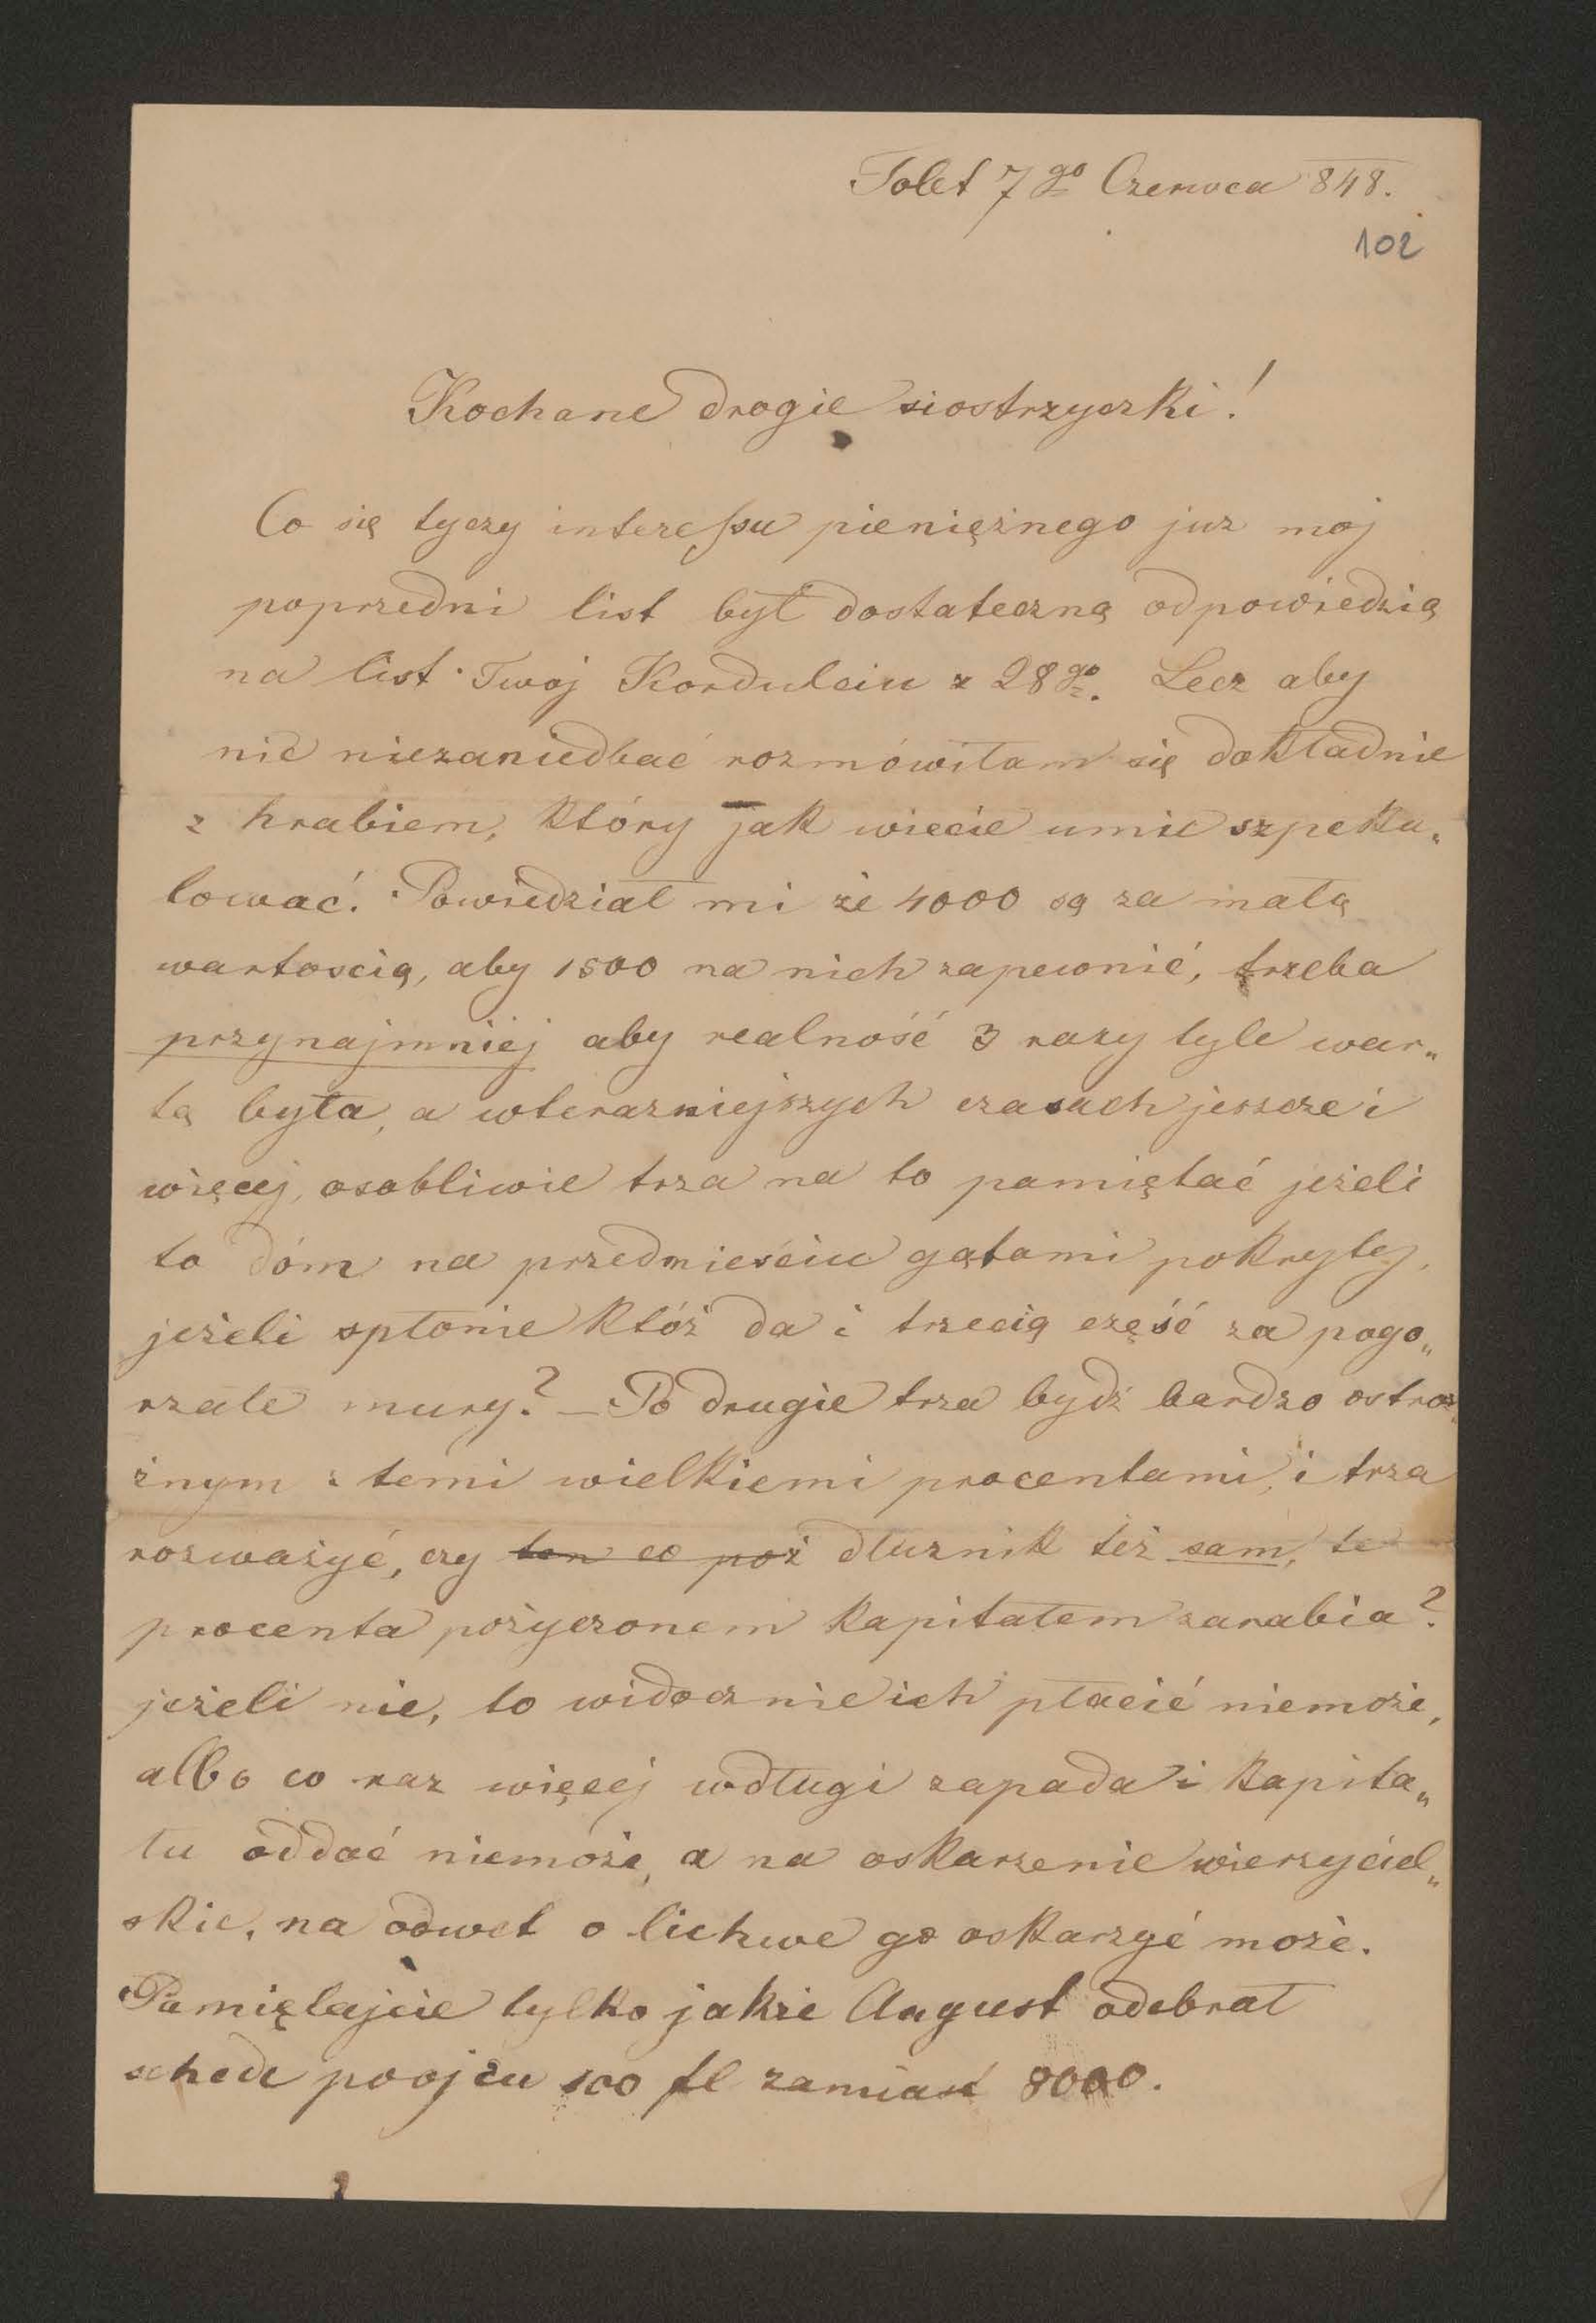 Tolet 7go Czerwca 848.
102
Kochane drogie siostrzyczki!
Co się tyczy interessu pieniężnego juz moj
poprzedni list był dostateczną odpowiedzią
na list Twoj Kordulciu z 28go. Lecz aby
nic niezaniedbać rozmówiłam się dokładnie
z hrabiem, który jak wiecie umie szpeku„
lować. Powiedział mi że 4000 są za małą
wartoscią, aby 1500 na nich zapewnić, trzeba
przynajmniej aby realność 3 razy tyle war„
tą była, a wterazniejszych czasach jeszcze i
więcej, osobliwie trza na to pamiętać jeżeli
to dóm na przedmieściu gątami pokryty,
jeżeli spłonie któż da i trzecią część za pogo„
rzałe mury? – Po drugie trza bydź bardzo ostroż„
żnym z temi wielkiemi procentami, i trza
rozważyć, czy ten co poż dłuznik też sam, te
procenta pożyczonem kapitałem zarabia?
jeżeli nie, to widocznie ich płacić niemoże,
albo co raz więcej wdługi zapada i kapita„
łu oddać niemoże, a na oskarzenie wierzyciel„
skie, na odwet o lichwe go oskarzyć może.
Pamiętajcie tylko jakże August odebrał
schede poojcu 100 fl zamiast 8000.